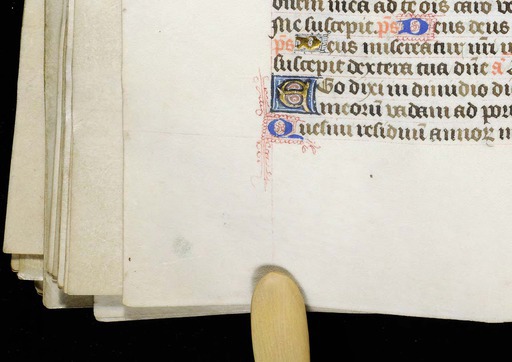 onem mea ad te ois caro ve
Me suscepit. ps Deus deus
ps Deus misereatur nri
suscepit dextera tua dñe a
EGo dixi in dimidio di
meorū vadam ad port
Quesiui residuū annoꝝ m